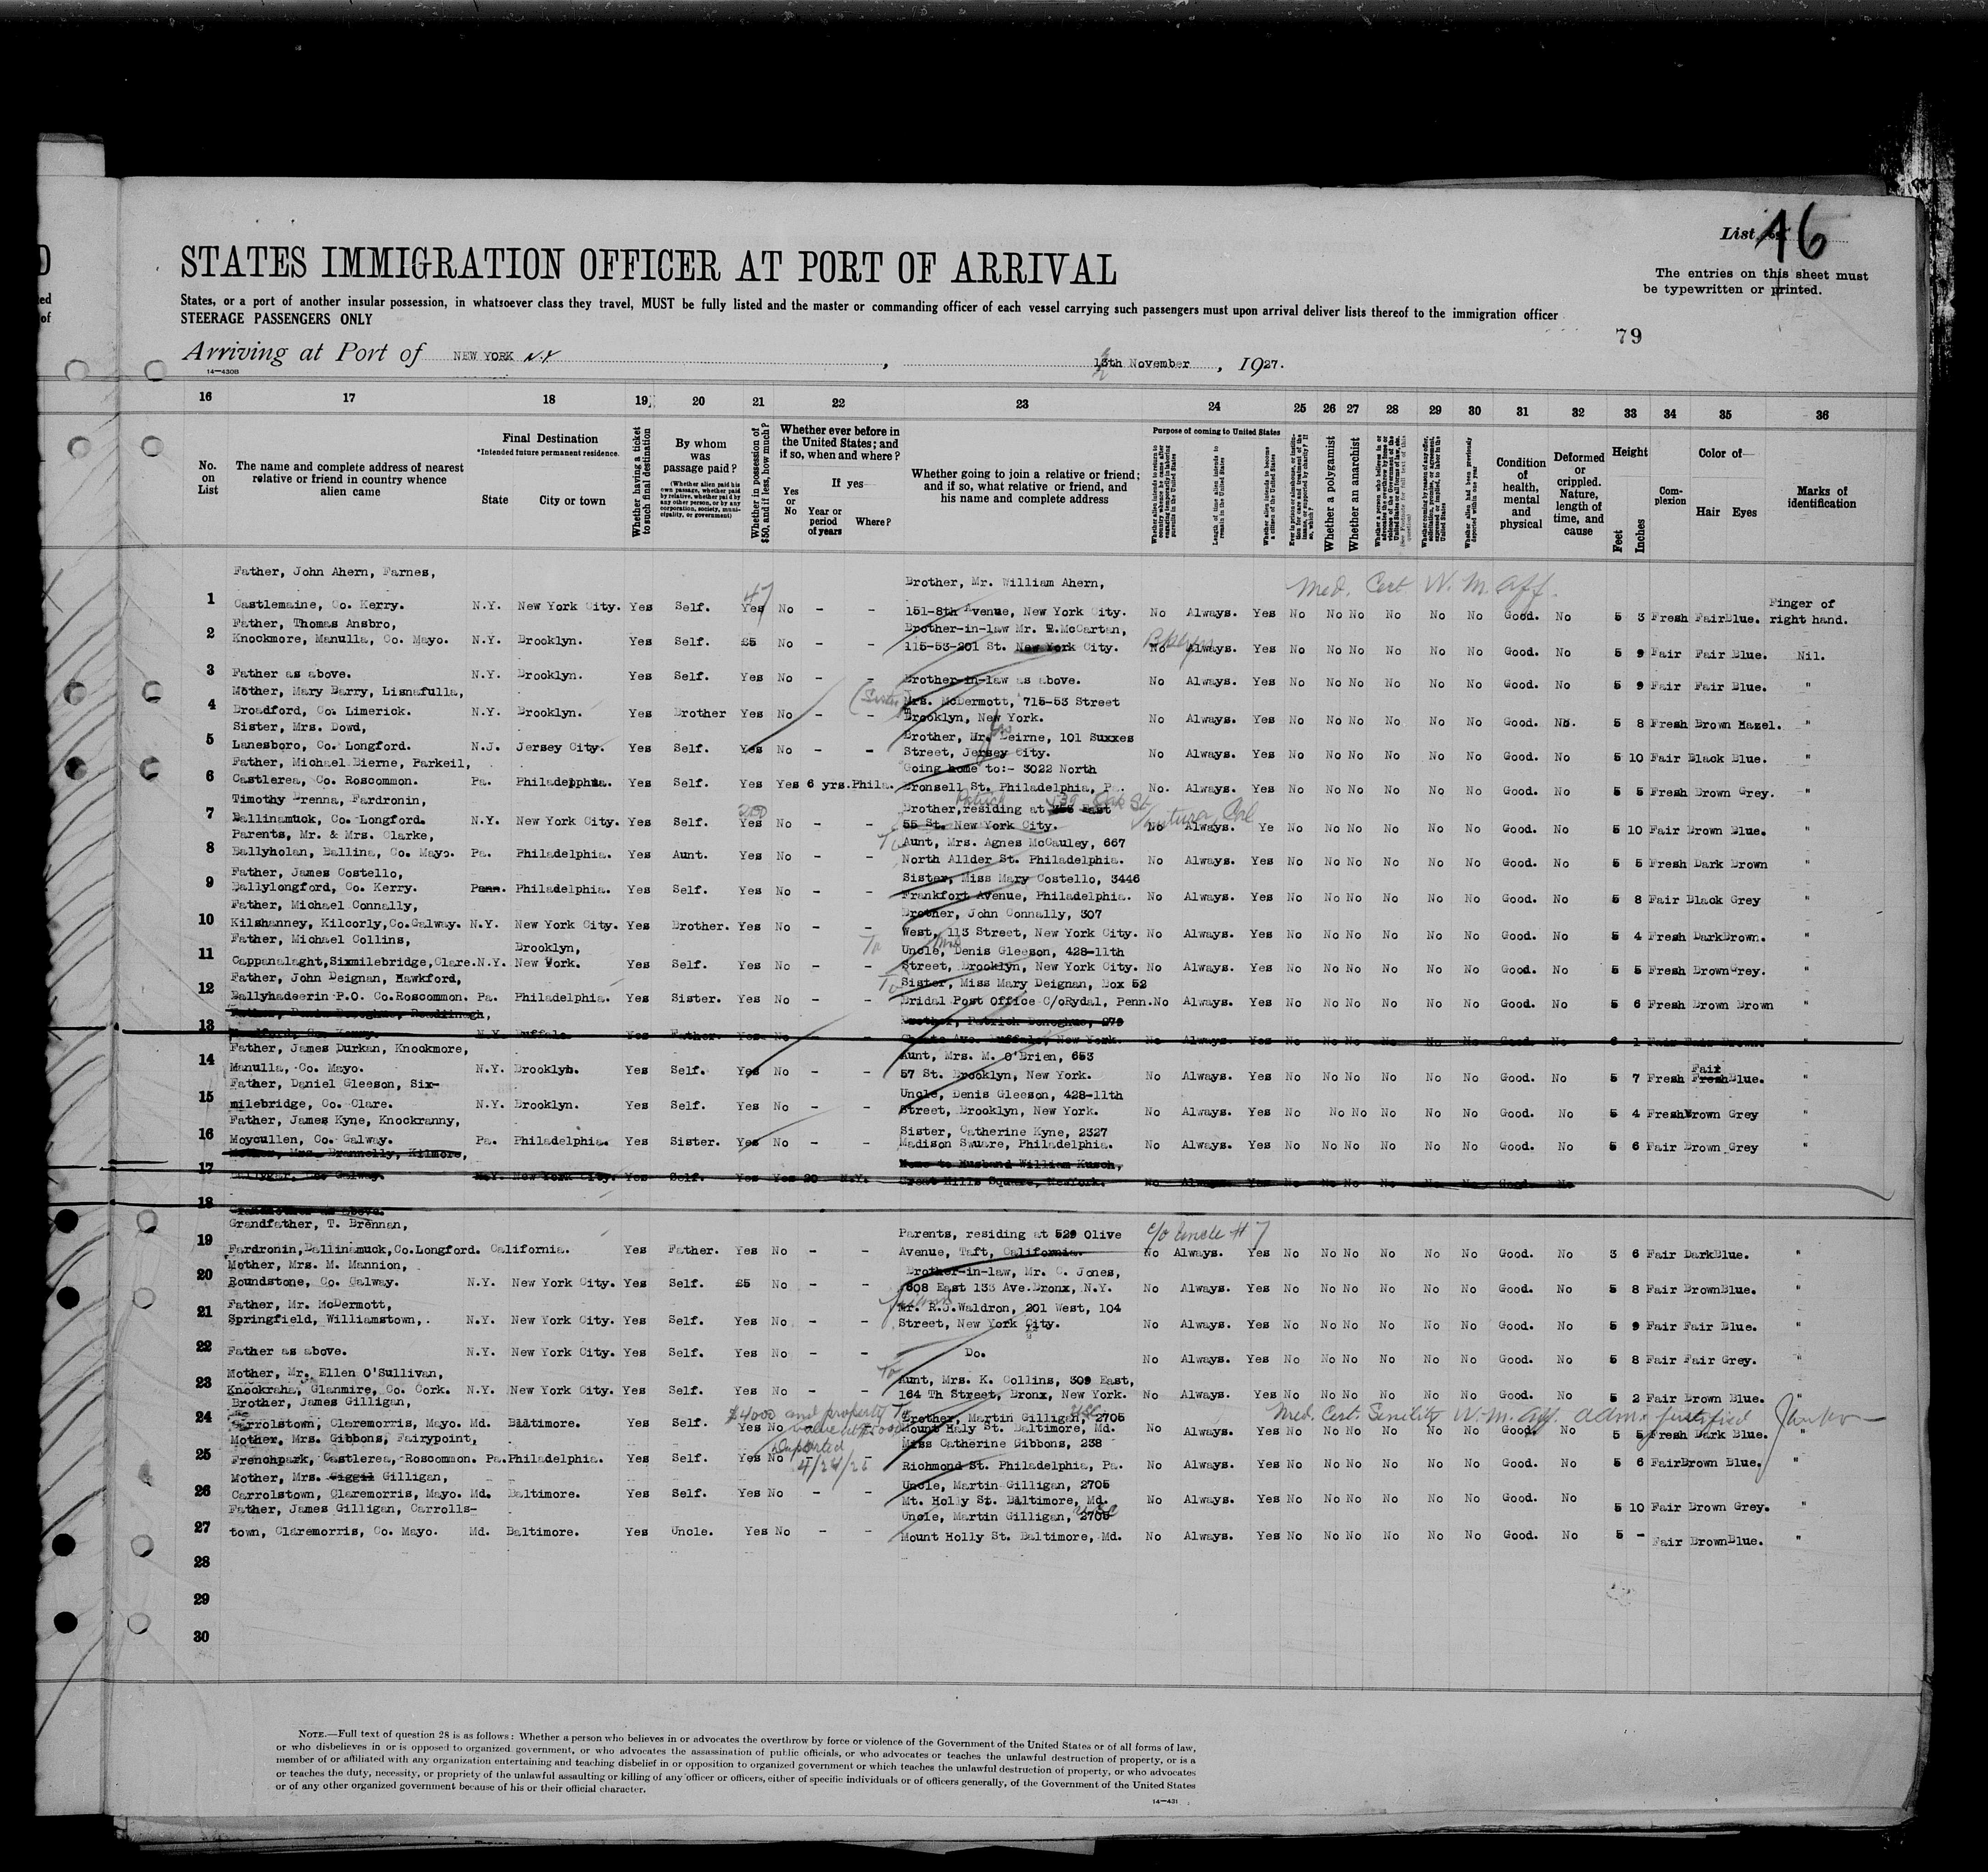 List 16
The entries on this sheet must
be typewritten or printed.
STATES IMMIGRATION OFFICER AT PORT OF ARRIVAL
States, or a port of another insular possession, in whatsoever class they travel, MUST be fully listed and the master or commanding officer of each vessel carrying such passengers must upon arrival deliver lists thereof to the immigration officer
STEERAGE PASSENGERS ONLY
79
Arriving at Port of NEW YORK N.Y. , 13th November , 1927.
14—430B
16 17 18 19 20 21 22 23 24 25 26 27 28 29 30 31 32 33 34 35 36
No. on List
The name and complete address of nearest relative or friend in country whence alien came
Final Destination
*Intended future permanent residence.
State City or town
Whether having a ticket to such final destination
By whom was passage paid?
(Whether alien paid his own passage, whether paid by relative, whether paid by any other person, or by any corporation, society, municipality, or government)
Whether in possession of $50, and if less, how much?
Whether ever before in the United States; and if so, when and where?
Yes or No
If yes—
Year or period of years
Where?
Whether going to join a relative or friend; and if so, what relative or friend, and his name and complete address
Purpose of coming to United States
Length of time alien intends to remain in the United States
Whether alien intends to become a citizen of the United States
Whether a polygamist
Whether an anarchist
Whether alien had been previously deported within one year
Condition of health, mental and physical
Deformed or crippled. Nature, length of time, and cause
Height
Feet Inches
Complexion
Color of—
Hair Eyes
Marks of identification
Father, John Ahern, Farnes, Brother, Mr. William Ahern, Med. Cert W. M. Aff.
47
1 Castlemaine, Co. Kerry. N.Y. New York City. Yes Self. Yes No - - 151-8th Avenue, New York City. No Always. Yes No No No No No No Good. No 5 3 Fresh Fair Blue. Finger of right hand.
Father, Thomas Ansbro, Brother-in-law Mr. T.McCartan,
2 Knockmore, Manulla, Co. Mayo. N.Y. Brooklyn. Yes Self. £5 No - - 115-53-201 St. New York City. No Always. Yes No No No No No No Good. No 5 9 Fair Fair Blue. Nil.
3 Father as above. N.Y. Brooklyn. Yes Self. Yes No - - Brother-in-law as above. No Always. Yes No No No No No No Good. No 5 9 Fair Fair Blue. "
Mother, Mary Barry, Lisnafulla, (Sister) Mrs. McDermott, 715-53 Street
4 Broadford, Co. Limerick. N.Y. Brooklyn. Yes Brother Yes No - - Brooklyn, New York. No Always. Yes No No No No No No Good. No. 5 8 Fresh Brown Hazel. "
Sister, Mrs. Dowd, Brother, Mr. Beirne, 101 Suxxes
5 Lanesboro, Co. Longford. N.J. Jersey City. Yes Self. Yes No - - Street, Jersey City. No Always. Yes No No No No No No Good. No 5 10 Fair Black Blue. "
Father, Michael Bierne, Parkeil, Going home to:- 3022 North
6 Castlerea, Co. Roscommon. Pa. Philadelphia. Yes Self. Yes Yes 6 yrs. Phila. Bronsell St. Philadelphia, Pa. No. Always. Yes No No No No No No Good. No 5 5 Fresh Brown Grey. "
Timothy Brenna, Fardronin, Brother, residing at East Oak St. Ventura, Cal
200
7 Ballinamuck, Co. Longford. N.Y. New York City. Yes Self. Yes No - - 55 St. New York City. No Always. Ye No No No No No No Good. No 5 10 Fair Brown Blue. "
Parents, Mr. & Mrs. Clarke, To Aunt, Mrs. Agnes McCauley, 667
8 Ballyholan, Ballina, Co. Mayo. Pa. Philadelphia. Yes Aunt. Yes No - - North Allder St. Philadelphia. No Always. Yes No No No No No No Good. No 5 5 Fresh Dark Brown "
Father, James Costello, Sister, Miss Mary Costello, 3446
9 Ballylongford, Co. Kerry. Penn. Philadelphia. Yes Self. Yes No - - Frankfort Avenue, Philadelphia. No Always. Yes No No No No No No Good. No 5 8 Fair Black Grey "
Father, Michael Connally, Brother, John Connally, 307
10 Kilshanney, Kilcorly, Co.Galway. N.Y. New York City. Yes Brother. Yes No - - West, 113 Street, New York City. No Always. Yes No No No No No No Good. No 5 4 Fresh Dark Brown. "
Father, Michael Collins, Brooklyn, To Uncle, Denis Gleeson, 428-11th
11 Cappanalaght, Sixmilebridge, Clare. N.Y. New York. Yes Self. Yes No - - Street, Brooklyn, New York City. No Always. Yes No No No No No No Good. No 5 5 Fresh Brown Grey. "
Father, John Deignan, Hawkford, To Sister, Miss Mary Deignan, Box 52
12 Ballyhadeerin P.O. Co.Roscommon. Pa. Philadelphia. Yes Sister. Yes No - - Bridal Post Office C/oRydal, Penn. No Always. Yes No No No No No No Good. No 5 6 Fresh Brown Brown "
Brother, Patrick Donoghue, 279
13 N.Y. Buffalo. Yes Father. Yes No - - Ave. Buffalo, New York. No Always. Yes No No No No No No Good. No 6 1 Fair Fair Brown. "
Father, James Durkan, Knockmore, Aunt, Mrs. M. O'Brien, 653
14 Manulla, Co. Mayo. N.Y. Brooklyn. Yes Self. Yes No - - 57 St. Brooklyn, New York. No Always. Yes No No No No No No Good. No 5 7 Fresh Fresh Fair Blue. "
Father, Daniel Gleeson, Six- Uncle, Denis Gleeson, 428-11th
15 milebridge, Co. Clare. N.Y. Brooklyn. Yes Self. Yes No - - Street, Brooklyn, New York. No Always. Yes No No No No No No Good. No 5 4 Fresh Brown Grey "
Father, James Kyne, Knockranny, Sister, Catherine Kyne, 2327
16 Moycullen, Co. Galway. Pa. Philadelphia. Yes Sister. Yes No - - Madison Swuare, Philadelphia. No Always. Yes No No No No No No Good. No 5 6 Fair Brown Grey "
Mother, Mrs. Brannelly, Kilmore, Home to Husband William Kusch,
17 Co. Galway. N.Y. New York City. Yes Self. Yes Yes 20 N.Y. Great Hills Square, NewYork. No Always. Yes No No No No No No Good. No
18 Grandmother as above.
Grandfather, T. Brennan, Parents, residing at 529 Olive c/o Uncle # 7
19 Fardronin, Ballinamuck, Co.Longford. California. Yes Father. Yes No - - Avenue, Taft, California. No Always. Yes No No No No No No Good. No 3 6 Fair Dark Blue. "
Mother, Mrs. M. Mannion, Brother-in-law, Mr. C. Jones,
20 Roundstone, Co. Galway. N.Y. New York City. Yes Self. £5 No - - 608 East 133 Ave. Bronx, N.Y. No Always. Yes No No No No No No Good. No 5 8 Fair Brown Blue. "
Father, Mr. McDermott, Mr. R.J. Waldron, 201 West, 104
21 Springfield, Williamstown,. N.Y. New York City. Yes Self. Yes No - - Street, New York City. No Always. Yes No No No No No No Good. No 5 9 Fair Fair Blue. "
22 Father as above. N.Y. New York City. Yes Self. Yes No - - Do. No Always. Yes No No No No No No Good. No 5 8 Fair Fair Grey. "
Mother, Mr. Ellen O'Sullivan, To Aunt, Mrs. K. Collins, 309 East,
23 Knockraha, Glanmire, Co. Cork. N.Y. New York City. Yes Self. Yes No - - 164 Th Street, Bronx, New York. No Always. Yes No No No No No No Good. No 5 2 Fair Brown Blue. "
Brother, James Gilligan, $4000 and property To Brother, Martin Gilligan, 2705 Med. Cert. Senility W. M. Aff. adm. justified
24 Carrolstown, Claremorris, Mayo. Md. Baltimore. Yes Self. Yes No Mount Haly St. Baltimore, Md. No Always. Yes No No No No No No Good. No 5 5 Fresh Dark Blue. "
Mother. Mrs. Gibbons, Fairypoint, Deported 4/24/26 Miss Catherine Gibbons, 238
25 Frenchpark, Castlerea, Roscommon. Pa. Philadelphia. Yes Self. Yes No - Richmond St. Philadelphia, Pa. No Always. Yes No No No No No No Good. No 5 6 Fair Brown Blue. "
Mother, Mrs. Giggil Gilligan, Uncle, Martin Gilligan, 2705
26 Carrolstown, Claremorris, Mayo. Md. Baltimore. Yes Self. Yes No - - Mt. Holly St. Baltimore, Md. No Always. Yes No No No No No No Good. No 5 10 Fair Brown Grey. "
Father, James Gilligan, Carrolls- Uncle, Martin Gilligan, 2705
27 town, Claremorris, Co. Mayo. Md. Baltimore. Yes Uncle. Yes No - - Mount Holly St. Baltimore, Md. No Always. Yes No No No No No No Good. No 5 - Fair Brown Blue. "
28
29
30
NOTE.—Full text of question 28 is as follows: Whether a person who believes in or advocates the overthrow by force or violence of the Government of the United States or of all forms of law,
or who disbelieves in or is opposed to organized government, or who advocates the assassination of public officials, or who advocates or teaches the unlawful destruction of property, or is a
member of or affiliated with any organization entertaining and teaching disbelief in or opposition to organized government or which teaches the unlawful destruction of property, or who advocates
or teaches the duty, necessity, or propriety of the unlawful assaulting or killing of any officer or officers, either of specific individuals or of officers generally, of the Government of the United States
or of any other organized government because of his or their official character.
14—431